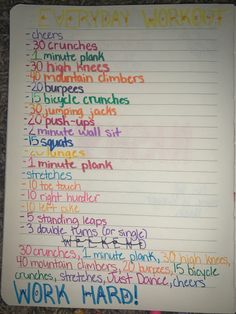 EVERYDAY WORKOUT
- cheers
- 30 crunches
- 1 minute plank
- 30 high knees
- 40 mountain climbers
- 20 burpees
- 15 bicycle crunches
- 30 jumping jacks
- 20 push-ups
- 2 minute wall sit
- 15 squats
- 20 lunges
- 1 minute plank
- stretches
- 10 toe touch
- 10 right hurdler
- 10 left pike
- 5 standing leaps
- 3 double turns (or single)
WEEKEND
30 crunches, 1 minute plank, 30 high knees,
40 mountain climbers, 20 burpees, 15 bicycle
crunches, stretches, Just Dance, cheers
WORK HARD!